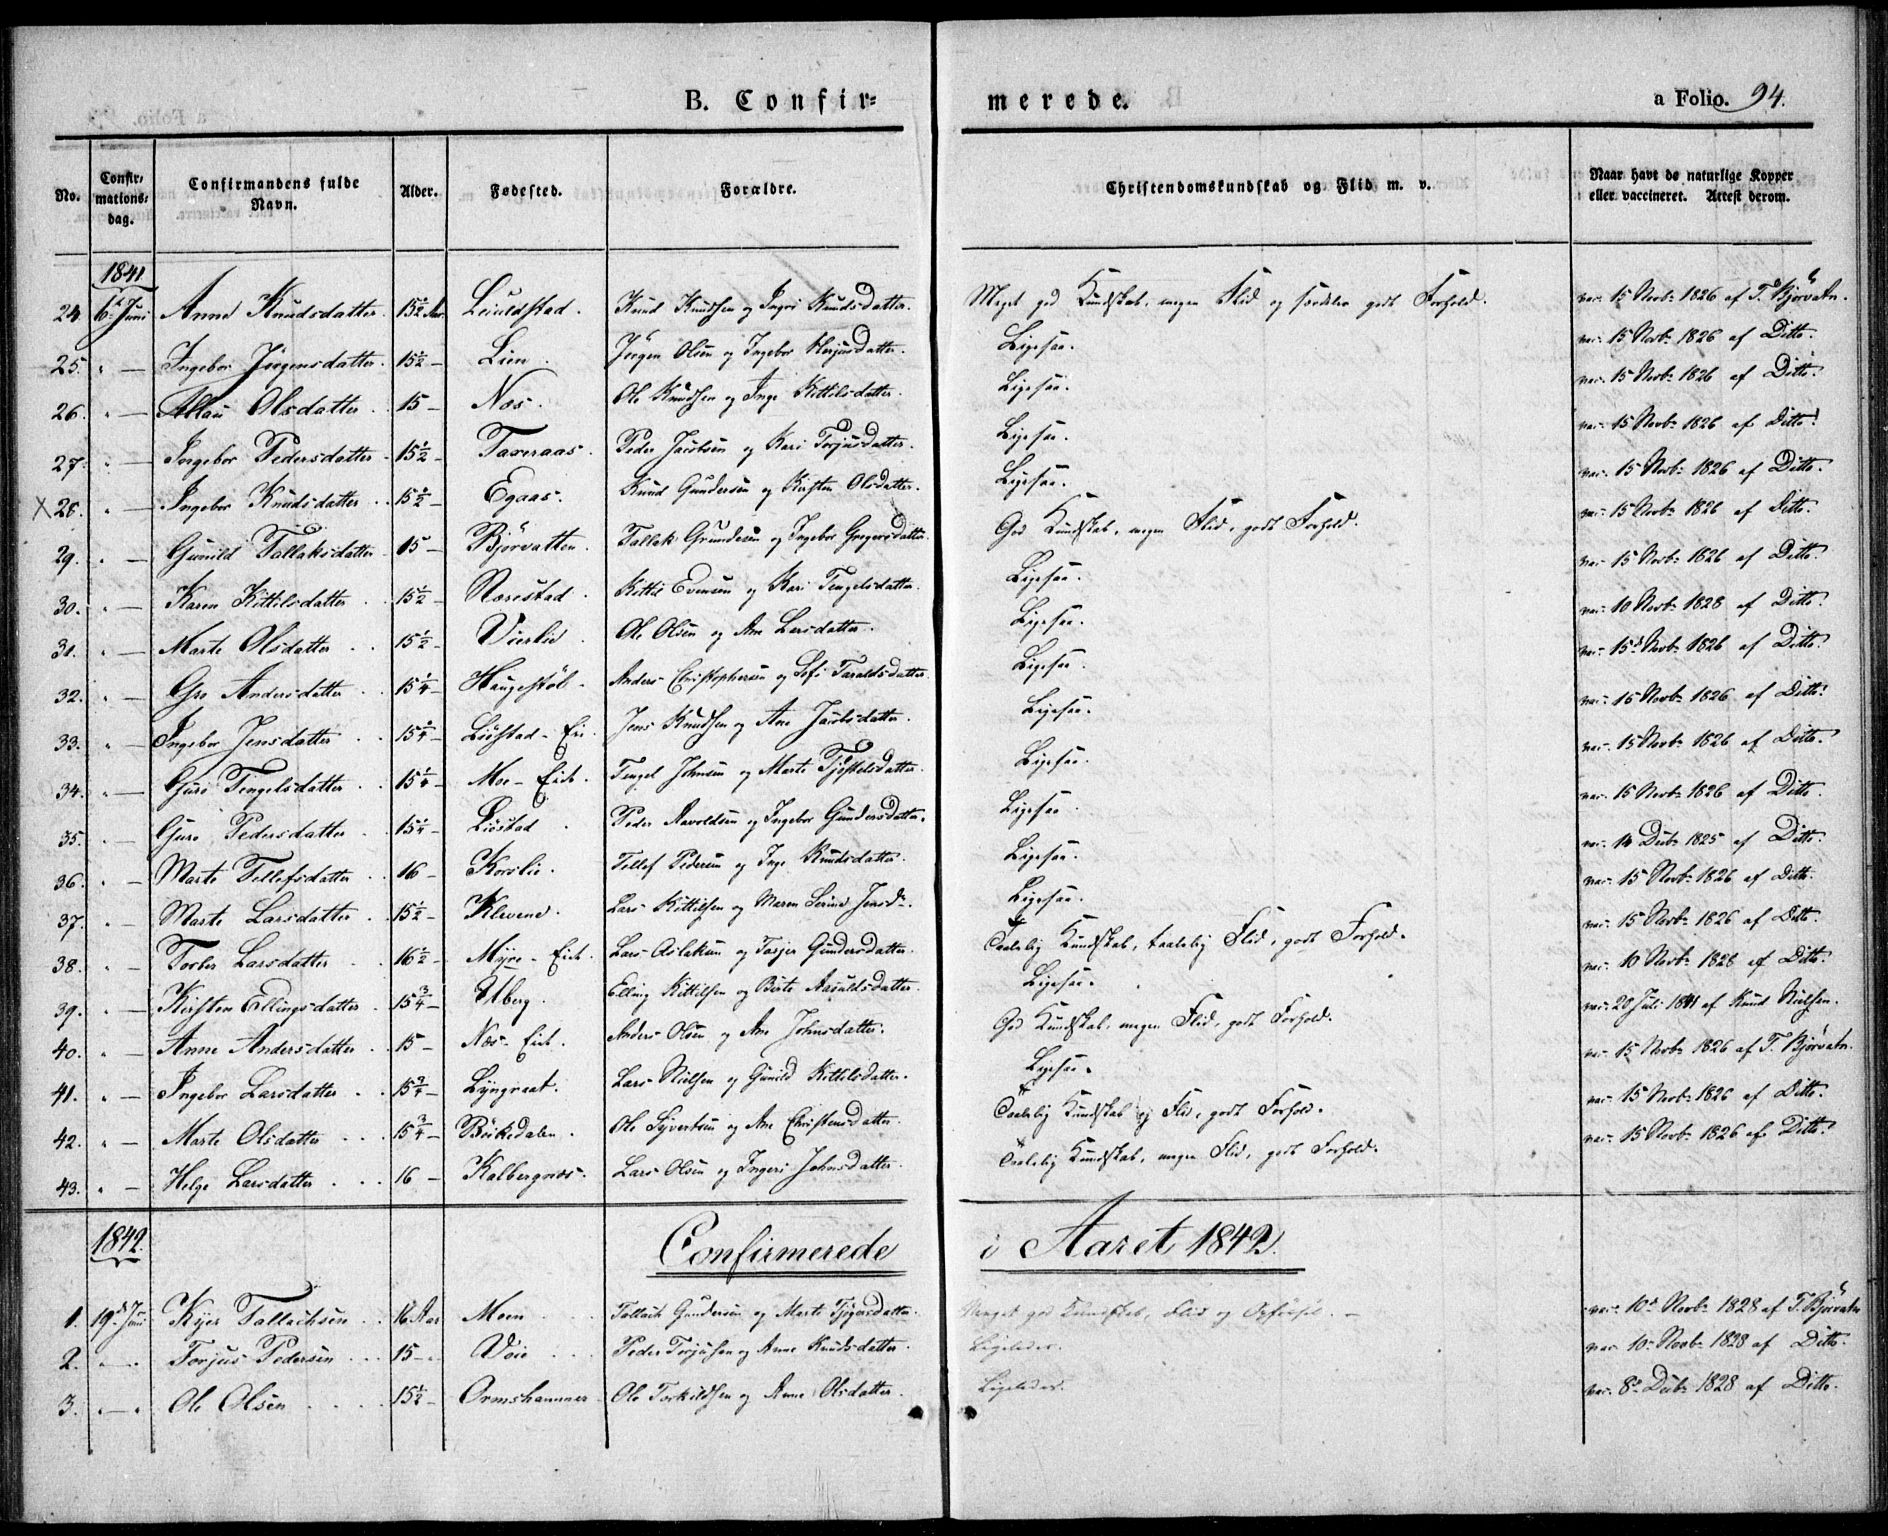 B. Confirmerede. a Folio. 94.
No. Confirmationsdag. Confirmandens fulde Navn. Alder. Fødested. Forældre. Christendomskundskab og Flid m. v. Naar havt de naturlige Kopper eller vaccineret. Attest derom.
1841
24. 6te Juni Anne Knudsdatter. 15½ Aar. Leiuldstad. Knud Knudsen og Ingri Knudsdatter. Meget god Kundskab, megen Flid og særdeles godt Forhold. vac. 15 Novb: 1826 af T. Bjørvatn.
25. " — Ingebor Jørgensdatter. 15½ — Lien. Jørgen Olsen og Ingebor datter. Ligesaa. vac. 15 Novb: 1826 af Ditto.
26. " — Olsdatter 15 — Næs. Ole Knudsen og Inge Kittilsdatter. Ligesaa. vac. 15 Novb: 1826 af Ditto.
27. " — Ingebor Pedersdatter 15½ — Taxeraas. Peder Jacobsen og Kari Torjusdatter. Ligesaa. vac. 15 Novb: 1826 af Ditto.
X 28. " — Ingebor Knudsdatter 15½ — Egaas. Knud Gundersen og Kirsten Olsdatter. Ligesaa. vac. 15 Novb: 1826 af Ditto.
29. " — Gunild Tallaksdatter 15 — Bjørvatten. Tallak Grundesen og Ingebor Gregersdatter. God Kundskab, megen Flid, godt Forhold. vac. 15 Novb: 1826 af Ditto.
30. " — Karen Kittilsdatter 15½ — Rærestad. Kittil Evensen og Kari Tengelsdatter. Ligesaa. vac. 15 Novb: 1826 af Ditto.
31. " — Marte Olsdatter 15½ — Vierlie. Ole Olsen og Ane Larsdatter. Ligesaa. vac. 10 Novb: 1828 af Ditto.
32. " — Gro Andersdatter 15¼ — Haugestøl. Anders Christophersen og Sofi Taraldsdatter. Ligesaa. vac. 15d Novb: 1826 af Ditto.
33. " — Ingebor Jensdatter 15¼ — Liøstad — Jens Knudsen og Ane Jacobsdatter. Ligesaa. vac. 15 Novb: 1826 af Ditto.
34. " — Guri Tengelsdatter 15¼ — Moe — Eich. Tengel Johnsen og Marte Tjøstelsdatter. Ligesaa. vac. 15 Novb: 1826 af Ditto.
35. " — Guro Pedersdatter 15¼ — Liøstad Peder Aavoldsen og Ingebor Gundersdatter. Ligesaa. vac. 15 Novb: 1826 af Ditto.
36. " — Marte Tellefsdatter 16 — Korslie. Tellef Pedersen og Inge Knudsdatter. Ligesaa. vac. 14 Decbr 1825 af Ditto.
37. " — Marte Larsdatter 15½ — Klevene. Lars Kittilsen og Maren Serine Jensdr. Ligesaa. vac. 15 Novb: 1826 af Ditto.
38. " — Torber Larsdatter 16½ — Myre — Eich. Lars Aslaksen og Tarjer Gundersdatter. Taalelig Kundskab, taalelig Flid, godt Forhold. vac. 15 Novb: 1826 af Ditto.
39. " — Kirsten Ellingsdatter 15¾ — Uberg. Elling Kittilsen og Birte Aasuldsdatter. Ligesaa. vac. 10 Novb: 1828 af Ditto.
40. " — Anne Andersdatter 15 — Næs — Eich. Anders Olsen og Ane Johnsdatter. God Kundskab, megen Flid, godt Forhold. vac. 20 Juli 1841 af Knud Nielsen.
41. " — Ingebor Larsdatter 15¾ — Lyngraat. Lars Nielsen og Gunild Kittilsdatter. Ligesaa. vac. 15 Novb: 1826 af T. Bjørvatn.
42. " — Marte Olsdatter 15¾ — Bøikedalen. Ole Syvertsen og Ane Christensdatter. Taalelig Kundskab og Flid, godt Forhold. vac. 15 Novb: 1826 af Ditto.
43. " — Helge Larsdatter 16 — Kalbergnæs. Lars Olsen og Ingeri Johnsdatter. Taalelig Kundskab, megen Flid, godt Forhold. vac. 15 Novb: 1826 af Ditto.
1842. Confirmerede i Aaret 1842.
1. 19de Juni Kyer Tallachsen 16 Aar Moen Tallack Gundersen og Marte datter. Meget god Kundskab, Flid og Opførsel. — vac. 10d Novb: 1828 af T. Bjørvatn
2. " — " Torjus Pedersen 15 — Voie Peder Torjusen og Anne Knudsdatter. Ligeledes. vac. 10 Novb: 1828 af Ditto.
3. " — " Ole Olsen 15½ — Ormshammer Ole Torkildsen og Anne Olsdatter. Ligeledes. vac. 8d Decbr 1828 af Ditto.